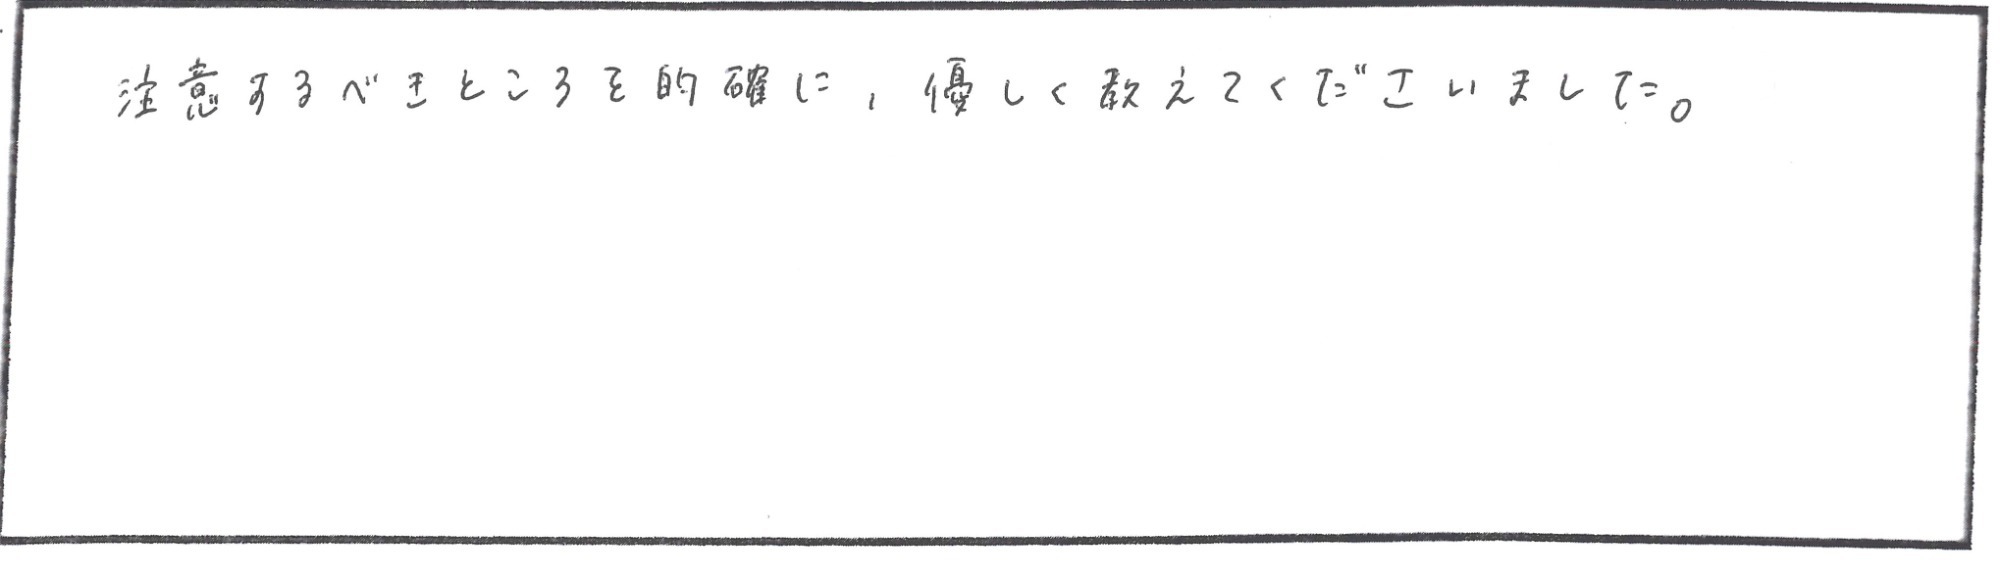 注意するべきところを的確に、優しく教えてくださいました。